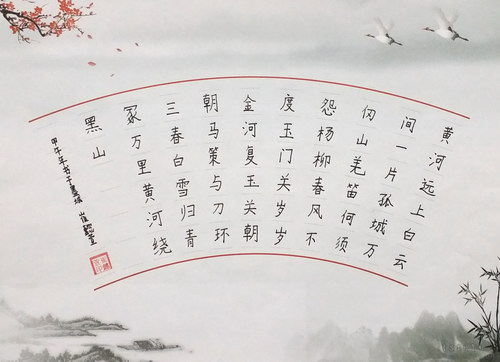 黄河远上白云
间一片孤城万
仞山羌笛何须
怨杨柳春风不
度玉门关岁岁
金河复玉关朝
朝马策与刀环
三春白雪归青
冢万里黄河绕
黑山
甲午年书于